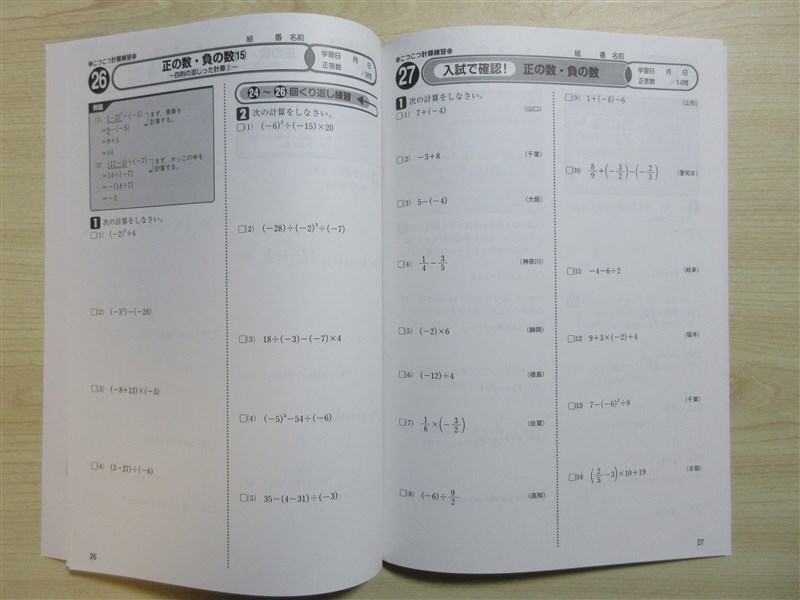 組 番 名前
●こつこつ計算練習●
26
正の数・負の数(15)
～四則の混じった計算②～
学習日 月 日
正答数
例題
(1) (-3)²-(-5)
まず，累乗を
計算する。
=9-(-5)
=9+5
=14
(2)
÷(-7)
まず，かっこの中を
計算する。
=14÷(-7)
=-(14÷7)
=-2
1 次の計算をしなさい。
□(1) (-2)²+6
□(2) (-3³)-(-28)
□(3) (-8+13)×(-3)
□(4) (3-27)÷(-6)
24～26回くり返し練習
2 次の計算をしなさい。
□(1) (-6)²÷(-15)×20
□(2) (-28)÷(-2)³÷(-7)
□(3) 18÷(-3)-(-7)×4
□(4) (-5)²-54÷(-6)
□(5) 35-(4-31)÷(-3)
26
組 番 名前
●こつこつ計算練習●
27
入試で確認！ 正の数・負の数
学習日 月 日
正答数 /14問
1 次の計算をしなさい。
□(1) 7+(-4) (山口)
□(2) -3+8 (千葉)
□(3) 5-(-4) (大阪)
□(4) 1/4-3/5 (神奈川)
□(5) (-2)×6 (静岡)
□(6) (-12)÷4 (徳島)
□(7) 1/6×(-3/2) (佐賀)
□(8) (-6)÷9/2 (高知)
□(9) 1+(-8)-6 (山形)
□(10) 8/9+(-3/2)-(-2/3) (愛知B)
□(11) -4-6÷2 (岐阜)
□(12) 9+3×(-2)+4 (福井)
□(13) 7-(-6)²÷9 (千葉)
□(14) (2/5-3)×10+19 (京都)
27